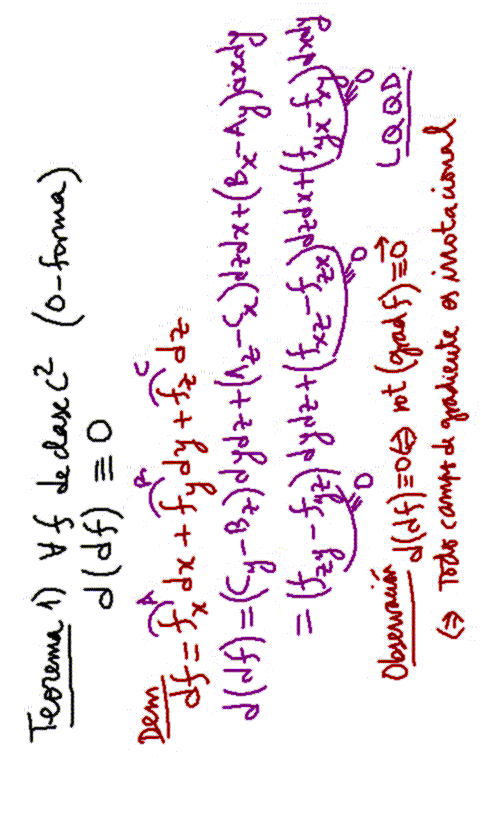 Teorema 1) ∀ f de clase C² (0-forma)
d(df) ≡ 0
Dem
A B C
df = f_x dx + f_y dy + f_z dz
d(df) = (C_y - B_z) dydz + (A_z - C_x) dzdx + (B_x - A_y) dxdy
= (f_zy - f_yz) dydz + (f_xz - f_zx) dzdx + (f_yx - f_xy) dxdy
0 0 0
LQQD.
Observación d(df) ≡ 0 ⇔ rot(grad f) ≡ 0⃗
⇔ Todo campo de gradiente es irrotacional